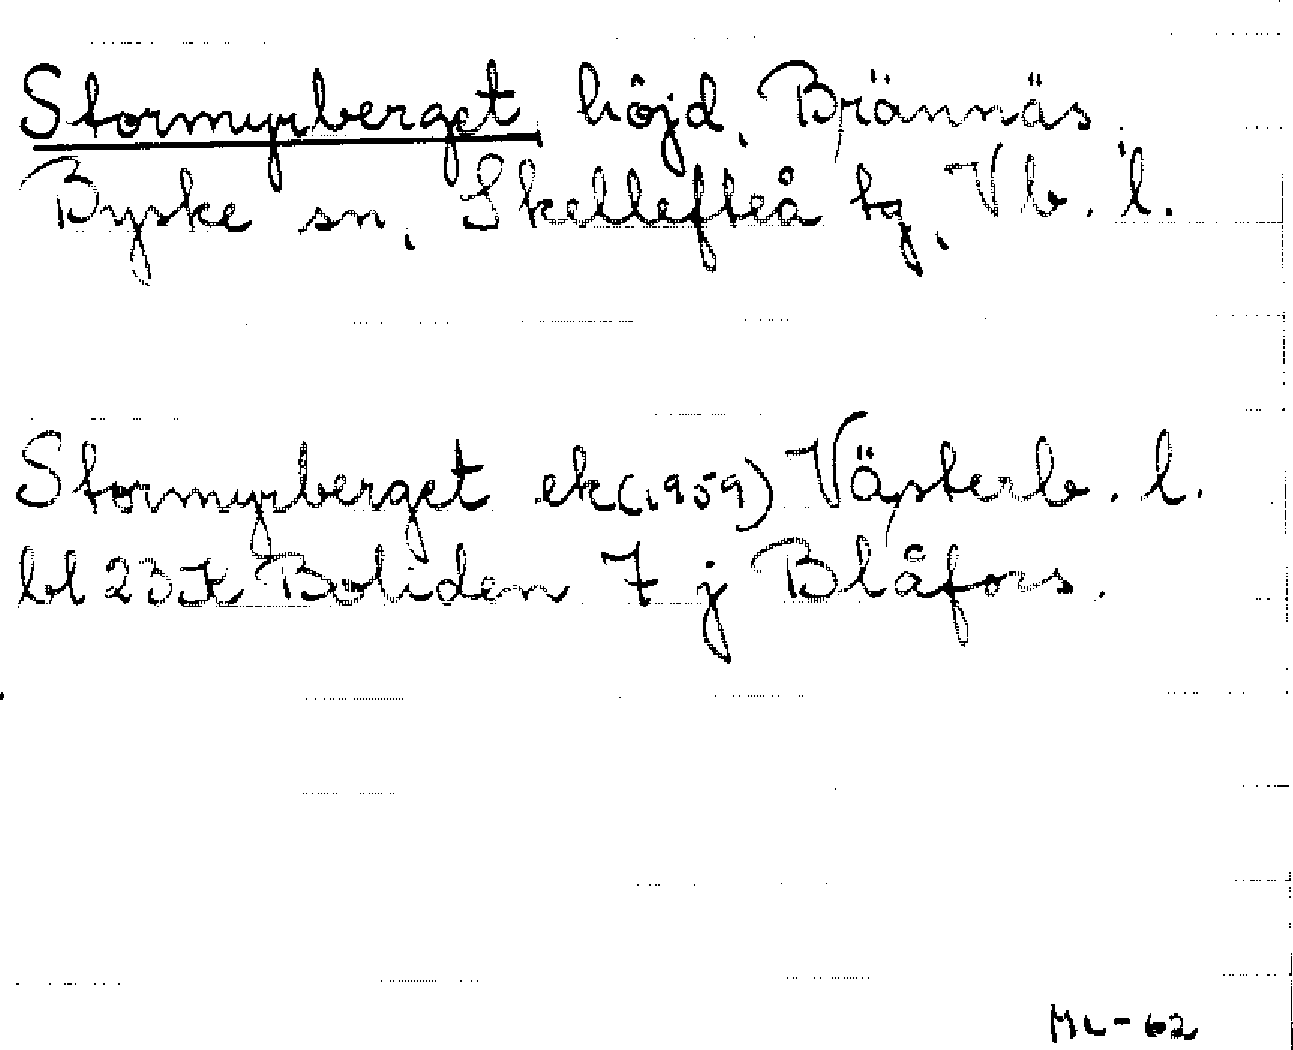 Stormyrberget höjd, Brännäs
Byske sn, Skellefteå tg, Vb. l.
Stormyrberget ek (1959) Västerb. l.
bl 23K Boliden 7 j Blåfors.
ML-62